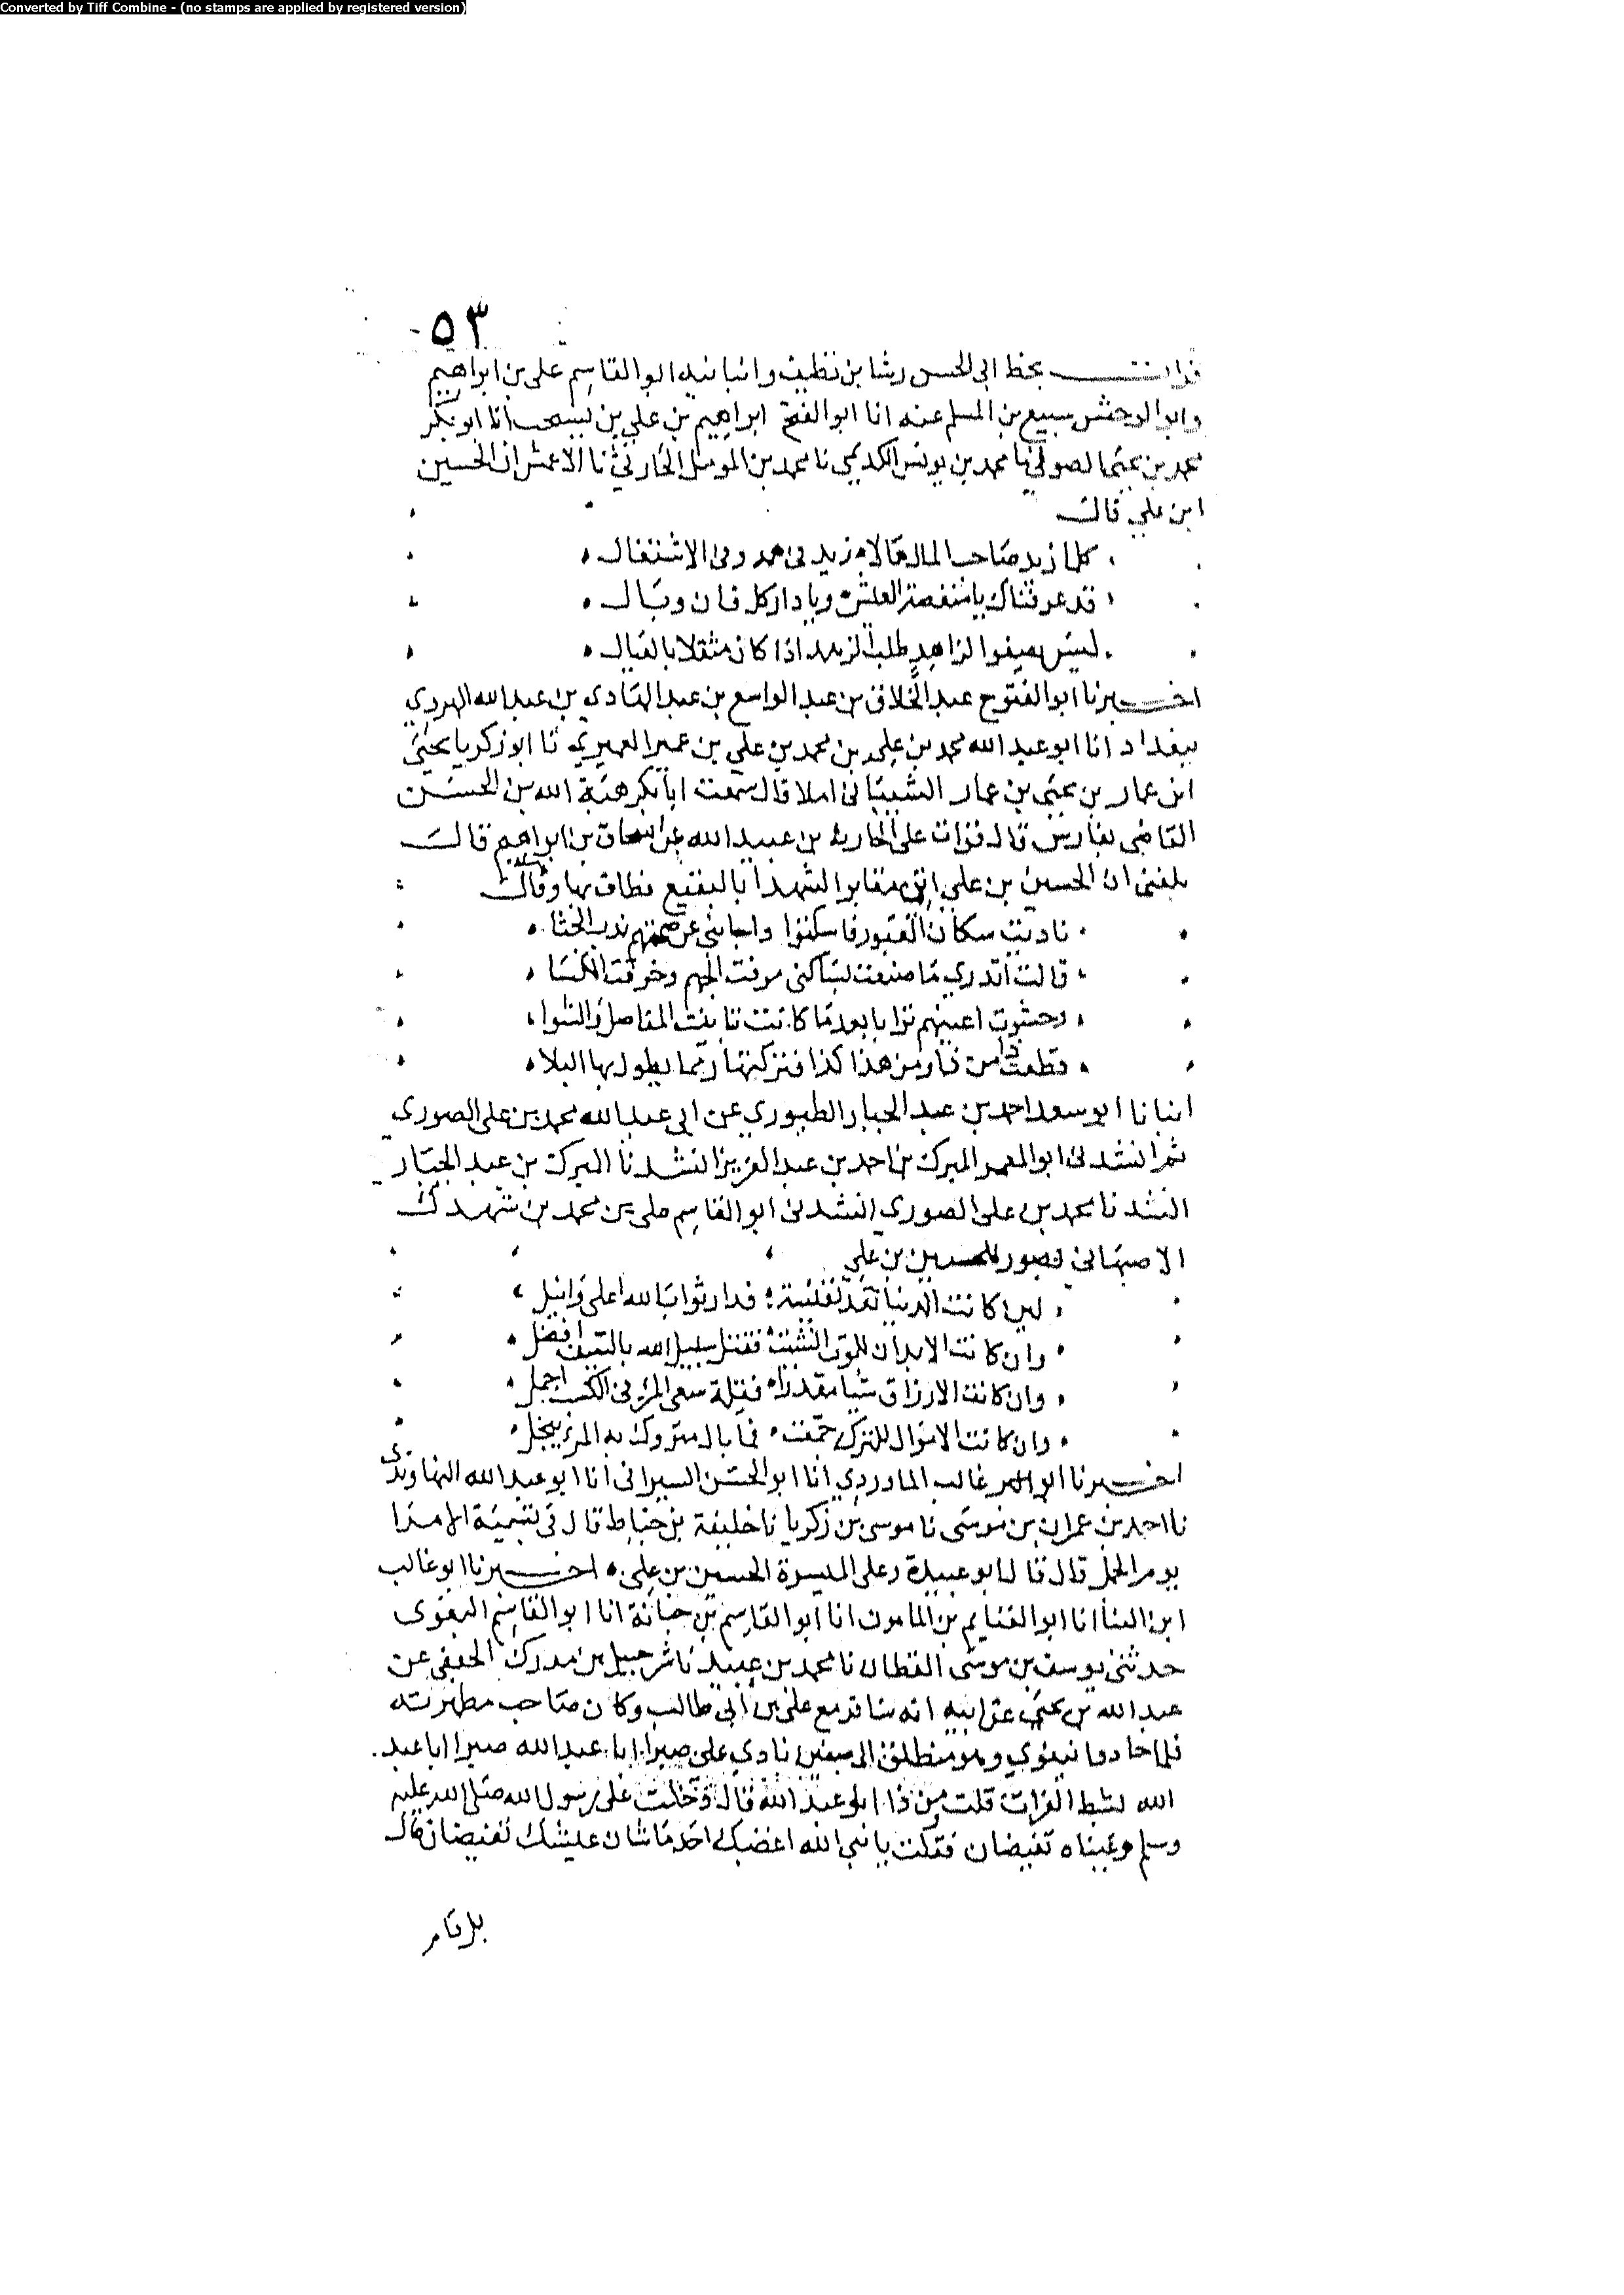 Converted by Tiff Combine - (no stamps are applied by registered version)
٥٣
قرات بخط ابي الحسن رشا بن نظيف وانبانيه ابو القاسم علي بن ابراهيم
وابو الوحش سبيع بن المسلم عنه انا ابو الفتح ابراهيم بن علي بن انا ابو بكر
محمد بن يحيى الصولي نا محمد بن يونس الكديمي نا محمد بن المومل الحارثي نا الاعمش ان الحسين
ابن علي قال
كلما زيد صاحب المال مالا زيد في همه وفي الاشتغال
قد عرفناك يا منغصة العيش ويا دار كل فان وبال
ليس يصفوا لزاهد طلب الزهد اذا كان مثقلا بالعيال
اخبرنا ابو الفتوح عبد الخلاق بن عبد الواسع بن عبد الهادي بن عبد الله الهروي
ببغداد انا ابو عبد الله محمد بن علي بن محمد بن علي بن عمير العميري نا ابو زكريا يحيى
ابن عمار بن يحيى بن عمار الشيباني املا قال سمعت ابا بكر هبة الله بن الحسن
القاضي بفارس قال قرات على الحارث بن عبيد الله عن اسحاق بن ابراهيم قال
بلغني ان الحسين بن علي اتى مقابر الشهدا بالبقيع فطاف بها وقال
ناديت سكان القبور فاسكتوا واجابني عن صمتهم ندب الجثا
قالت اتدري ما صنعت بساكني مزقت الجهم وخرقت الكسا
وحشوت اعينهم ترابا بعدما كانت تاذى المفاصل والشوا
قطعت ذا من ذا ومن هذا كذا فتركتها رمما يطول بها البلا
انبانا ابو سعد احمد بن عبد الجبار الطيوري عن ابي عبد الله محمد بن علي الصوري
ثم انشدني ابو المعمر المبرك بن احمد بن عبد العزيز انشدنا المبرك بن عبد الجبار
انشدنا محمد بن علي الصوري انشدني ابو القاسم علي بن محمد بن شهدك
الاصبهاني بصور للحسين بن علي
لين كانت الدنيا تعد نفيسة فدار ثواب الله اعلى وانبل
وان كانت الابدان للموت انشيت فقتل سبيل الله بالسيف افضل
وان كانت الارزاق شيا مقدرا فقلة سعي المرء في الكسب اجمل
وان كانت الاموال للترك جمعت فما بال متروك به المرء يبخل
اخبرنا ابو غالب الماوردي انا ابو الحسن السيرافي انا ابو عبد الله النهاوندي
نا احمد بن عمران بن موسى نا موسى بن زكريا نا خليفة بن خياط قال في تسمية الامرا
يوم الجمل قال قال ابو عبيدة وعلى الميسرة الحسين بن علي اخبرنا ابو غالب
ابن البنا انا ابو الغنايم بن المامون انا ابو القاسم بن حبابة انا ابو القاسم البغوي
حدثني يوسف بن موسى القطان نا محمد بن عبيد نا شرحبيل بن مدرك الجعفي عن
عبد الله بن يحيى عن ابيه انه سافر مع علي بن ابي طالب وكان صاحب مطهرته
فلما حاذوا نينوى وهو منطلق الى صفين نادى علي صبرا ابا عبد الله صبرا ابا عبد
الله بشط الفرات قلت من ذا ابو عبد الله قال دخلت على رسول الله صلى الله عليه
وسلم وعيناه تفيضان فقلت يا نبي الله اغضبك احد ما شان عينيك تفيضان قال
بل قام